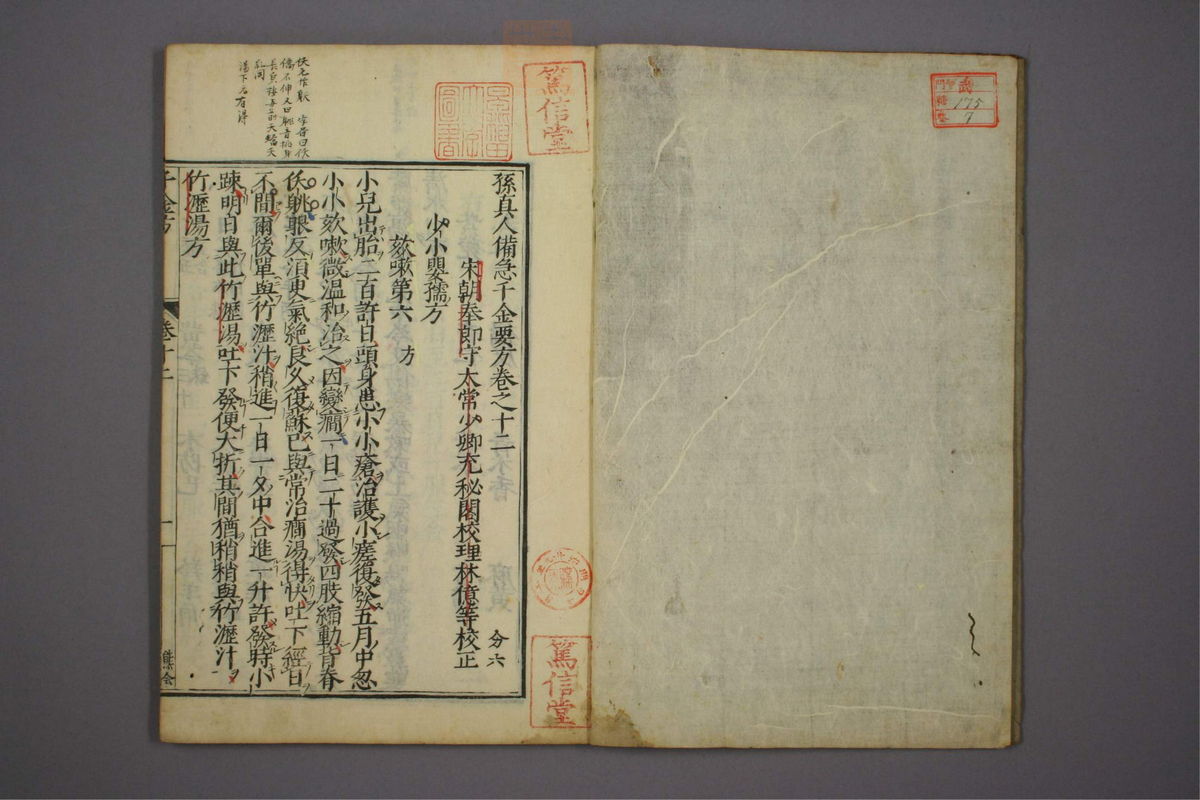 孫真人備急千金要方卷之十二
分六
宋朝奉郎守太常少卿充秘閣校理林億等校正
少小嬰孺方
欬嗽第六 方
小兒出胎二百許日頭身患小小瘡治護小瘥復發五月中忽
小小欬嗽微溫和治之因變癇一日二十過發四肢縮動背脊
㑸眼反須臾氣絕良久復蘇已與常治癇湯得快吐下經日
不間爾後單與竹瀝汁稍進一日一夕中合進一升許發時小
踈明日與此竹瀝湯吐下發便大折其間猶稍稍與竹瀝汁
竹瀝湯方
千金方 卷十二 一
篤信堂
篤信堂
175
7